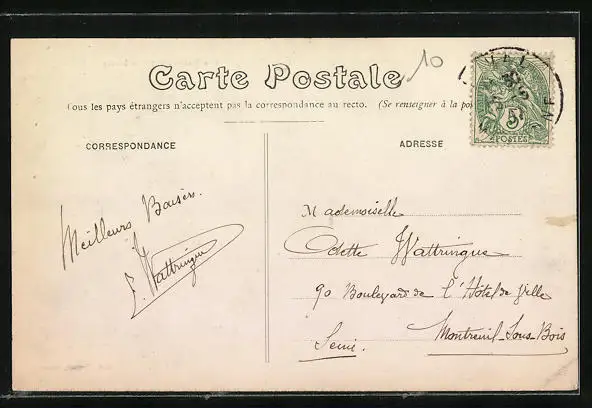 Carte Postale
10
Tous les pays étrangers n'acceptent pas la correspondance au recto. (Se renseigner à la pos
CORRESPONDANCE
ADRESSE
5
POSTES
Meilleurs Baisers.
E. Wattringue
Mademoiselle
Odette Wattringue
90 Boulevard de l'Hôtel de Ville
Montreuil-Sous-Bois
Seine.